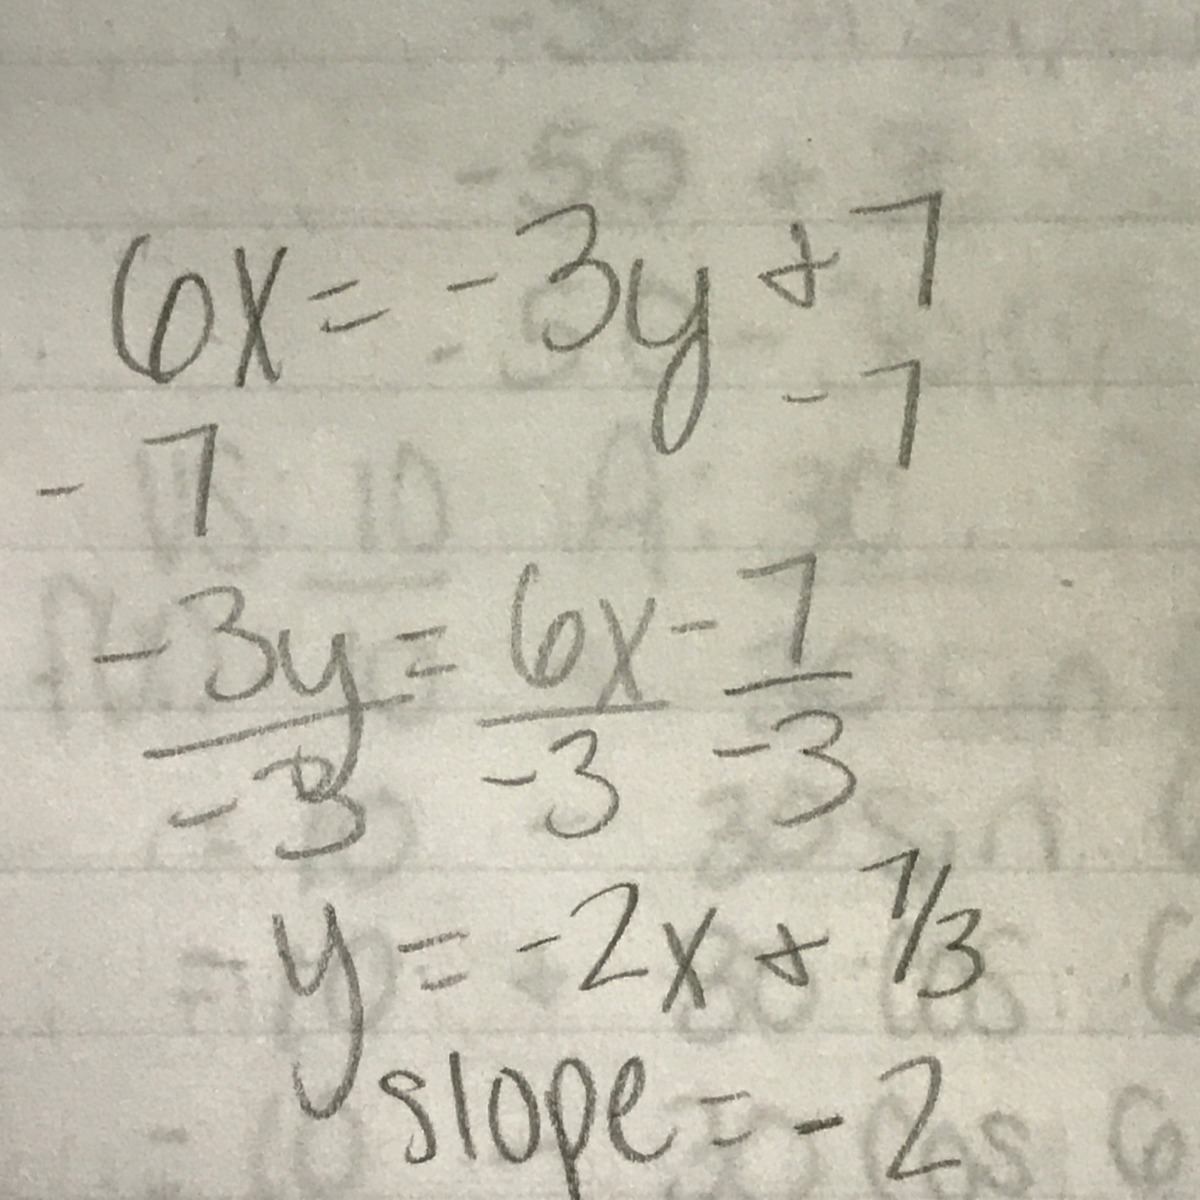 6x = -3y + 7
- 7 - 7
-3y = 6x - 7
-3 -3 -3
y = -2x + 7/3
slope = -2